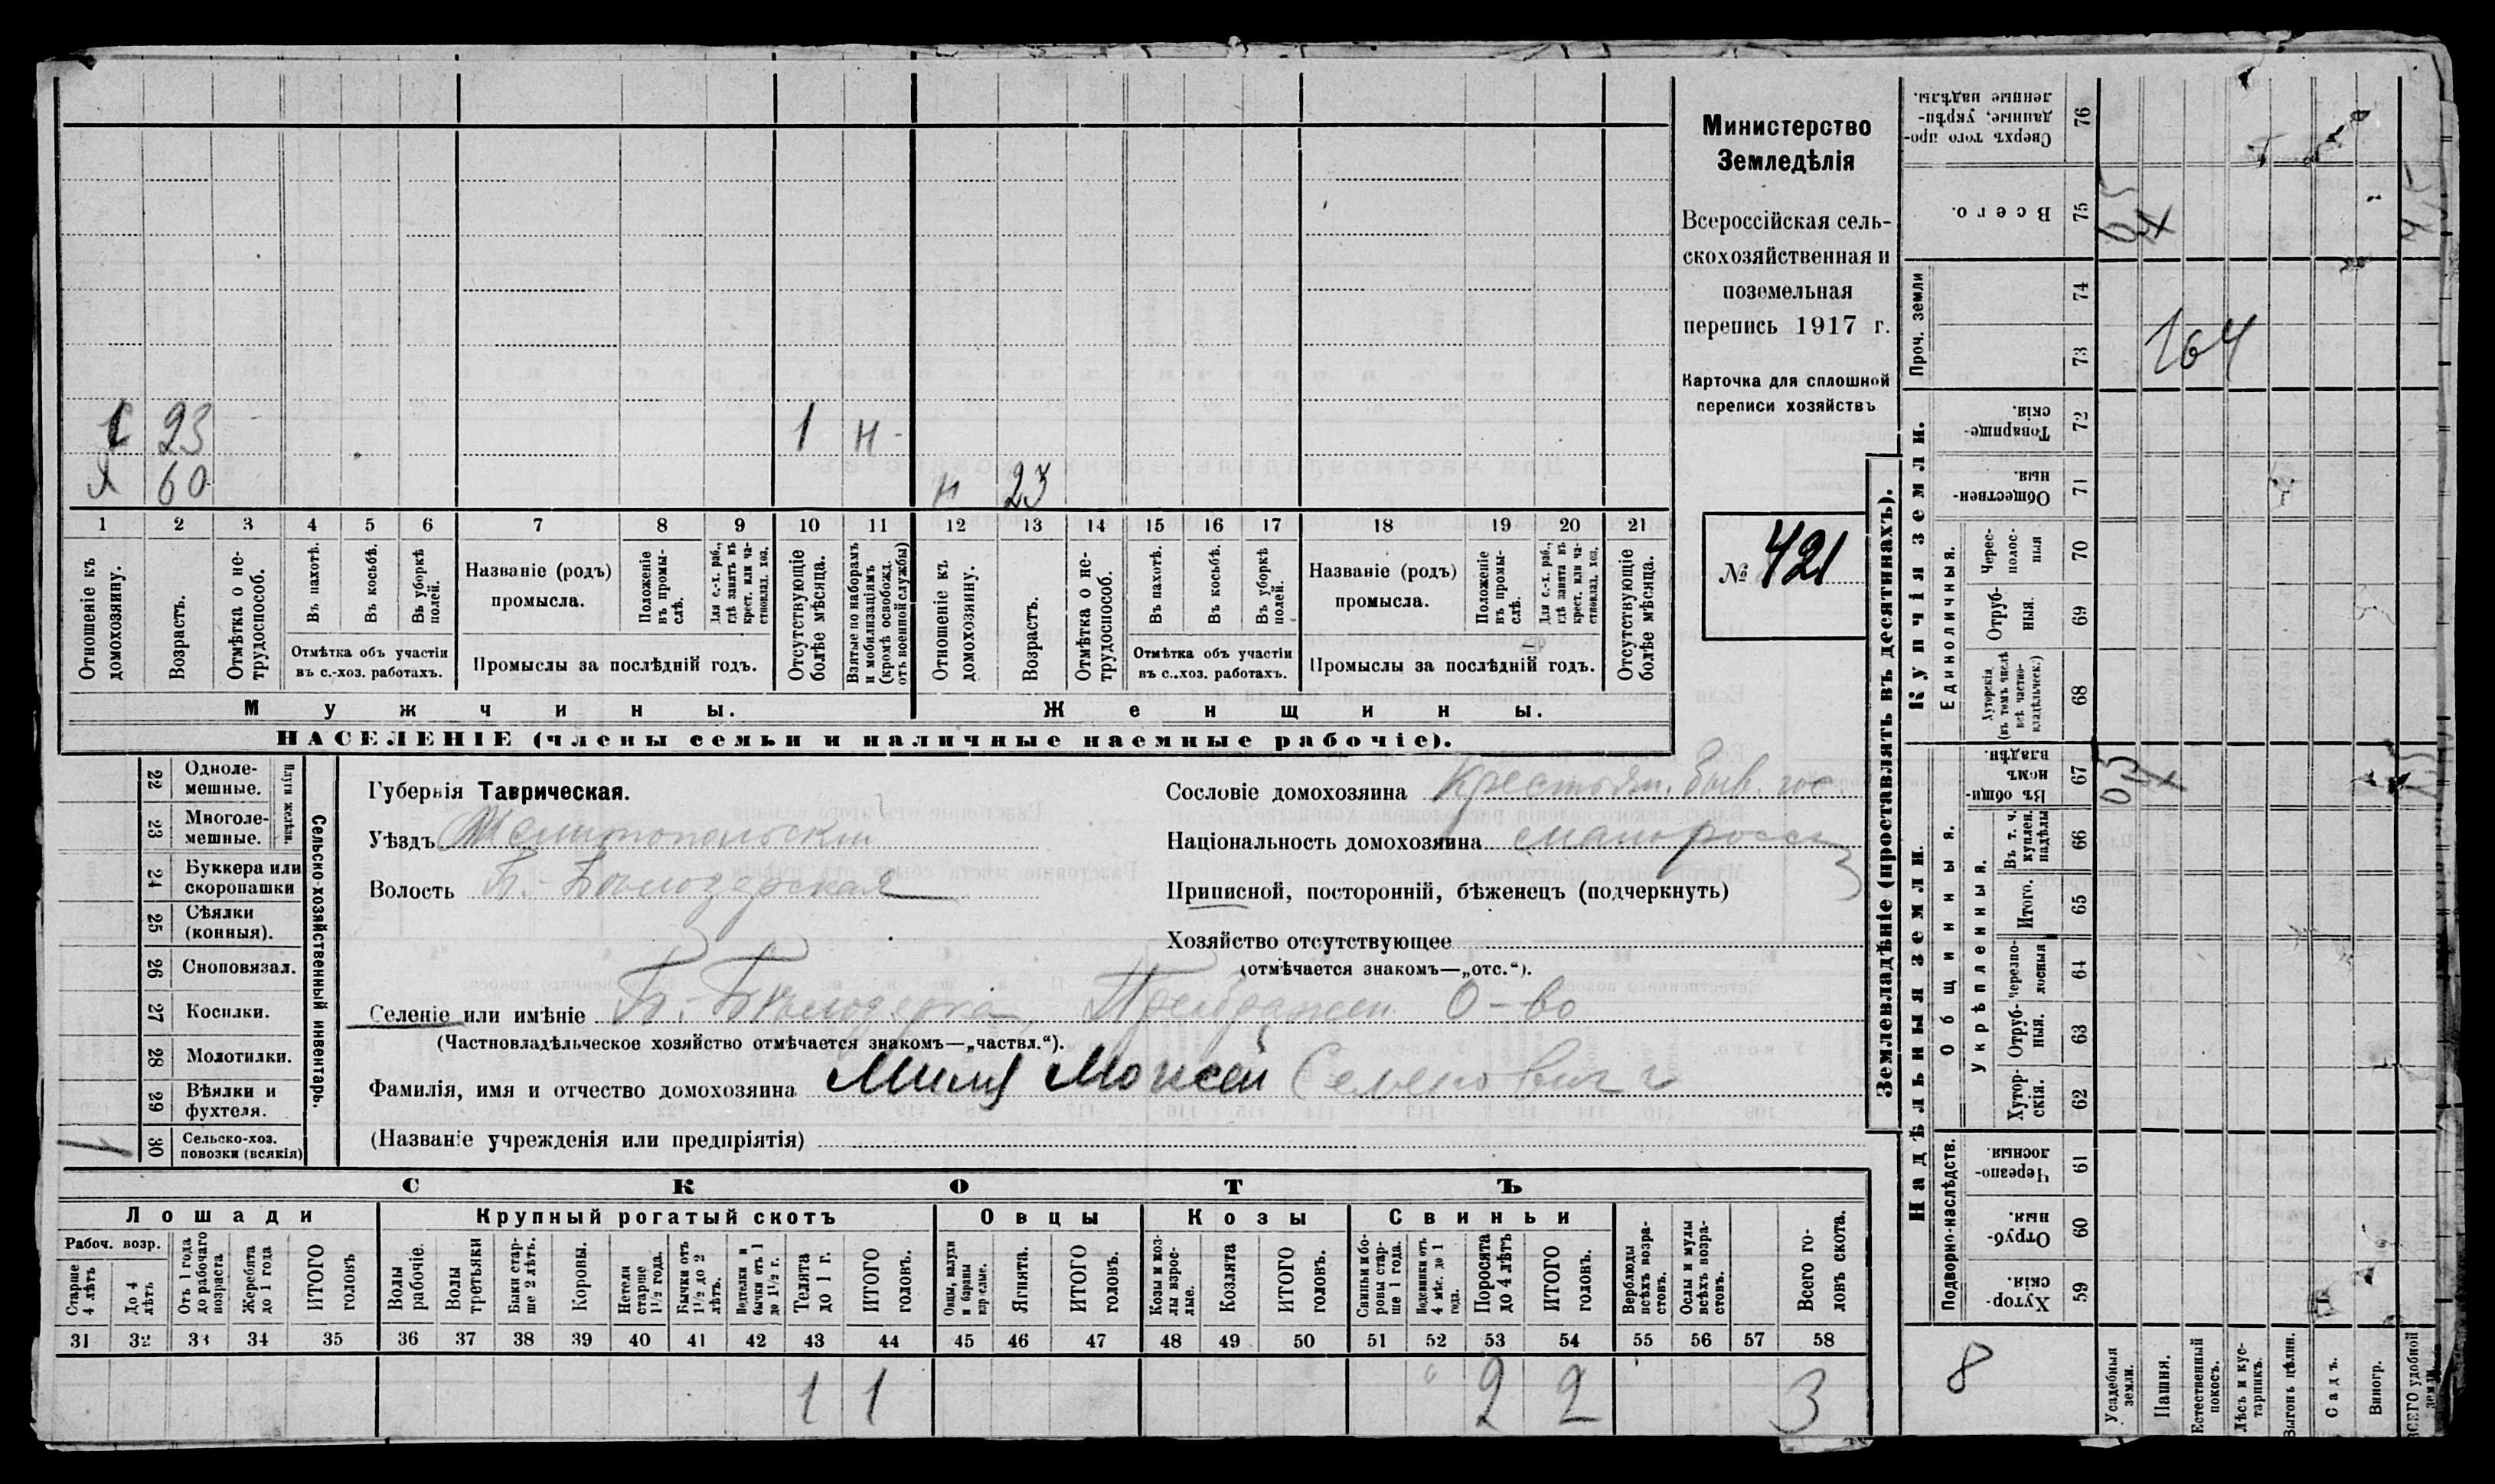 Министерство
Земледѣлія
Всероссійская сель-
скохозяйственная и
поземельная
перепись 1917 г.
Карточка для сплошной
переписи хозяйствъ
№ 421
23 1 н
Я 60 н 23
1 2 3 4 5 6 7 8 9 10 11 12 13 14 15 16 17 18 19 20 21
Отношеніе къ домохозяину.
Возрастъ.
Отмѣтка о не-трудоспособ.
Въ пахотѣ.
Въ косьбѣ.
Въ уборкѣ полей.
Отмѣтка объ участіи
въ с.-хоз. работахъ.
Названіе (родъ)
промысла.
Положеніе въ промы-слѣ.
Для с.-х. раб., гдѣ занятъ въ крест. или ча-стновлад. хоз.
Промыслы за послѣдній годъ.
Отсутствующіе болѣе мѣсяца.
Взятые по наборамъ и мобилизаціямъ (кромѣ освобожд. отъ военной службы)
Отношеніе къ домохозяину.
Возрастъ.
Отмѣтка о не-трудоспособ.
Въ пахотѣ.
Въ косьбѣ.
Въ уборкѣ полей.
Отмѣтка объ участіи
въ с..хоз. работахъ.
Названіе (родъ)
промысла.
Положеніе въ промы-слѣ.
Для с.-х. раб., гдѣ занята въ крест. или ча-стновлад. хоз.
Промыслы за послѣдній годъ.
Отсутствующіе болѣе мѣсяца.
Мужчины.
Женщины.
НАСЕЛЕНІЕ (члены семьи и наличные наемные рабочіе).
22 Одноле-мешные.
23 Многоле-мешные.
Плуги желѣзн.
24 Буккера или скоропашки
25 Сѣялки (конныя).
26 Сноповязал.
27 Косилки.
28 Молотилки.
29 Вѣялки и фухтеля.
30 Сельско-хоз. повозки (всякія)
1
Сельско-хозяйственный инвентарь.
Губернія Таврическая.
Уѣздъ Мелитопольскій
Волость Б.-Бѣлозерская
Сословіе домохозяина Крестьян. быв. гос
Національность домохозяина малоросс
Приписной, посторонній, бѣженецъ (подчеркнуть)
3
Хозяйство отсутствующее
(отмѣчается знакомъ—„отс.“).
Селеніе или имѣніе Б.-Бѣлозерка, Преображен. О-во
(Частновладѣльческое хозяйство отмѣчается знакомъ—„частвл.“).
Фамилія, имя и отчество домохозяина Моисей Семенович
(Названіе учрежденія или предпріятія)
СКОТЪ
Лошади
Крупный рогатый скотъ
Овцы
Козы
Свиньи
Рабоч. возр.
Старше 4 лѣтъ
До 4 лѣтъ
Отъ 1 года до рабочаго возраста
Жеребята до 1 года
ИТОГО головъ
Волы рабочіе.
Волы третьяки
Быки стар-ше 2 лѣтъ.
Коровы.
Нетели старше 1½ года.
Бычки отъ 1½ до 2 лѣтъ.
Подтелки и бычки отъ 1 до 1½ г.
Телята до 1 г.
ИТОГО головъ.
Овцы, валухи и бараны взрослые.
Ягнята.
ИТОГО головъ.
Козы и коз-лы взрос-лые.
Козлята
ИТОГО головъ.
Свиньи и бо-ровы стар-ше 1 года.
Подсвинки отъ 4 мѣс. до 1 года.
Поросята до 4 лѣтъ
ИТОГО головъ.
Верблюды всѣхъ возра-стовъ.
Ослы и мулы всѣхъ возра-стовъ.
Всего го-ловъ скота.
31 32 33 34 35 36 37 38 39 40 41 42 43 44 45 46 47 48 49 50 51 52 53 54 55 56 57 58
1 1 2 2 3
Землевладѣніе (проставлять въ десятинахъ).
Надѣльныя земли.
Купчія земли.
Проч. земли
Подворно-наслѣдств.
Общинныя.
Укрѣпленныя.
Единоличныя.
Сверхъ того про-данные, укрѣп-ленные надѣлы. 76
Всего. 75
74
73
164
Товарище-скія. 72
Обществен-ныя 71
Черес-полос-ныя 70
Отруб-ныя. 69
Хуторскія (въ томъ числѣ всѣ частно-владѣльческ.) 68
Въ общи-номъ владѣн. 67
Въ т. ч. куплен. надѣлы 66
Итого. 65
Черезпо-лосныя 64
Отруб-ныя. 63
Хутор-скія. 62
Черезпо-лосныя 61
Отруб-ныя. 60
Хутор-скія. 59
8
Усадебныя земли.
Пашня.
Естественный покосъ.
Лѣсъ и кус-тарникъ.
Выгонъ цѣлин.
Садъ.
Виногр.
ВСЕГО удобной земли.